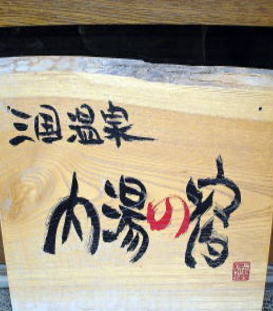 三国温泉
内湯の宿